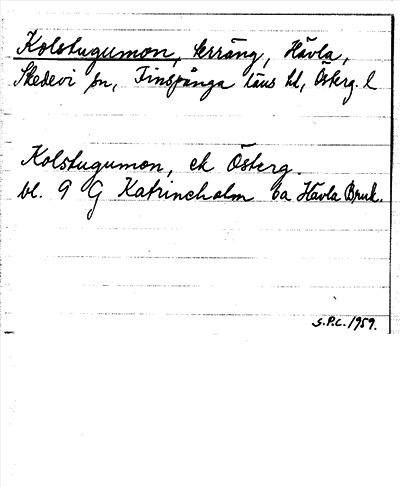 Kolstugumon, terräng, Hävla,
Skedevi sn, Finspånga läns hd, Österg. l
Kolstugumon, ek Österg.
bl. 9 G Katrineholm 6a Hävla Bruk.
S.P.C. 1959.